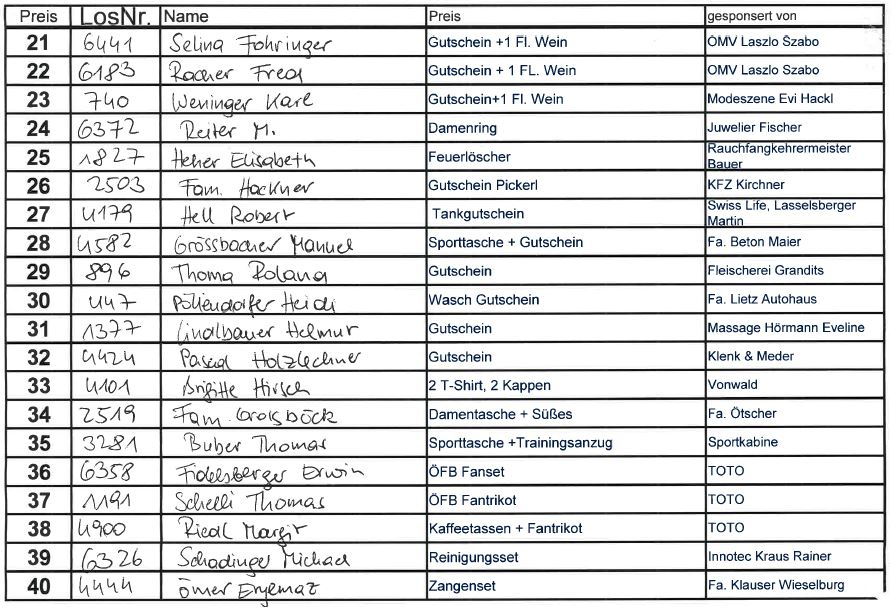 Preis LosNr. Name Preis gesponsert von
21 6441 Selina Fohringer Gutschein +1 Fl. Wein ÖMV Laszlo Szabo
22 6183 Racher Fred Gutschein + 1 FL. Wein OMV Laszlo Szabo
23 740 Weninger Karl Gutschein+1 Fl. Wein Modeszene Evi Hackl
24 6372 Reiter M. Damenring Juwelier Fischer
25 1827 Heher Elisabeth Feuerlöscher Rauchfangkehrermeister
Bauer
26 2503 Fam. Hackner Gutschein Pickerl KFZ Kirchner
27 4179 Hell Robert Tankgutschein Swiss Life, Lasselsberger
Martin
28 4582 Grössbacher Manuel Sporttasche + Gutschein Fa. Beton Maier
29 896 Thoma Roland Gutschein Fleischerei Grandits
30 447 Pöllendorfer Heidi Wasch Gutschein Fa. Lietz Autohaus
31 1377 Lindlbauer Helmut Gutschein Massage Hörmann Eveline
32 4424 Pascal Holzlechner Gutschein Klenk & Meder
33 4101 Brigitte Hirsch 2 T-Shirt, 2 Kappen Vonwald
34 2519 Fam. Groißböck Damentasche + Süßes Fa. Ötscher
35 3281 Buber Thomas Sporttasche +Trainingsanzug Sportkabine
36 6358 Fidelsberger Erwin ÖFB Fanset TOTO
37 1191 Schelli Thomas ÖFB Fantrikot TOTO
38 4900 Riedl Margit Kaffeetassen + Fantrikot TOTO
39 6326 Schadinger Michael Reinigungsset Innotec Kraus Rainer
40 4444 Ömer Zangenset Fa. Klauser Wieselburg